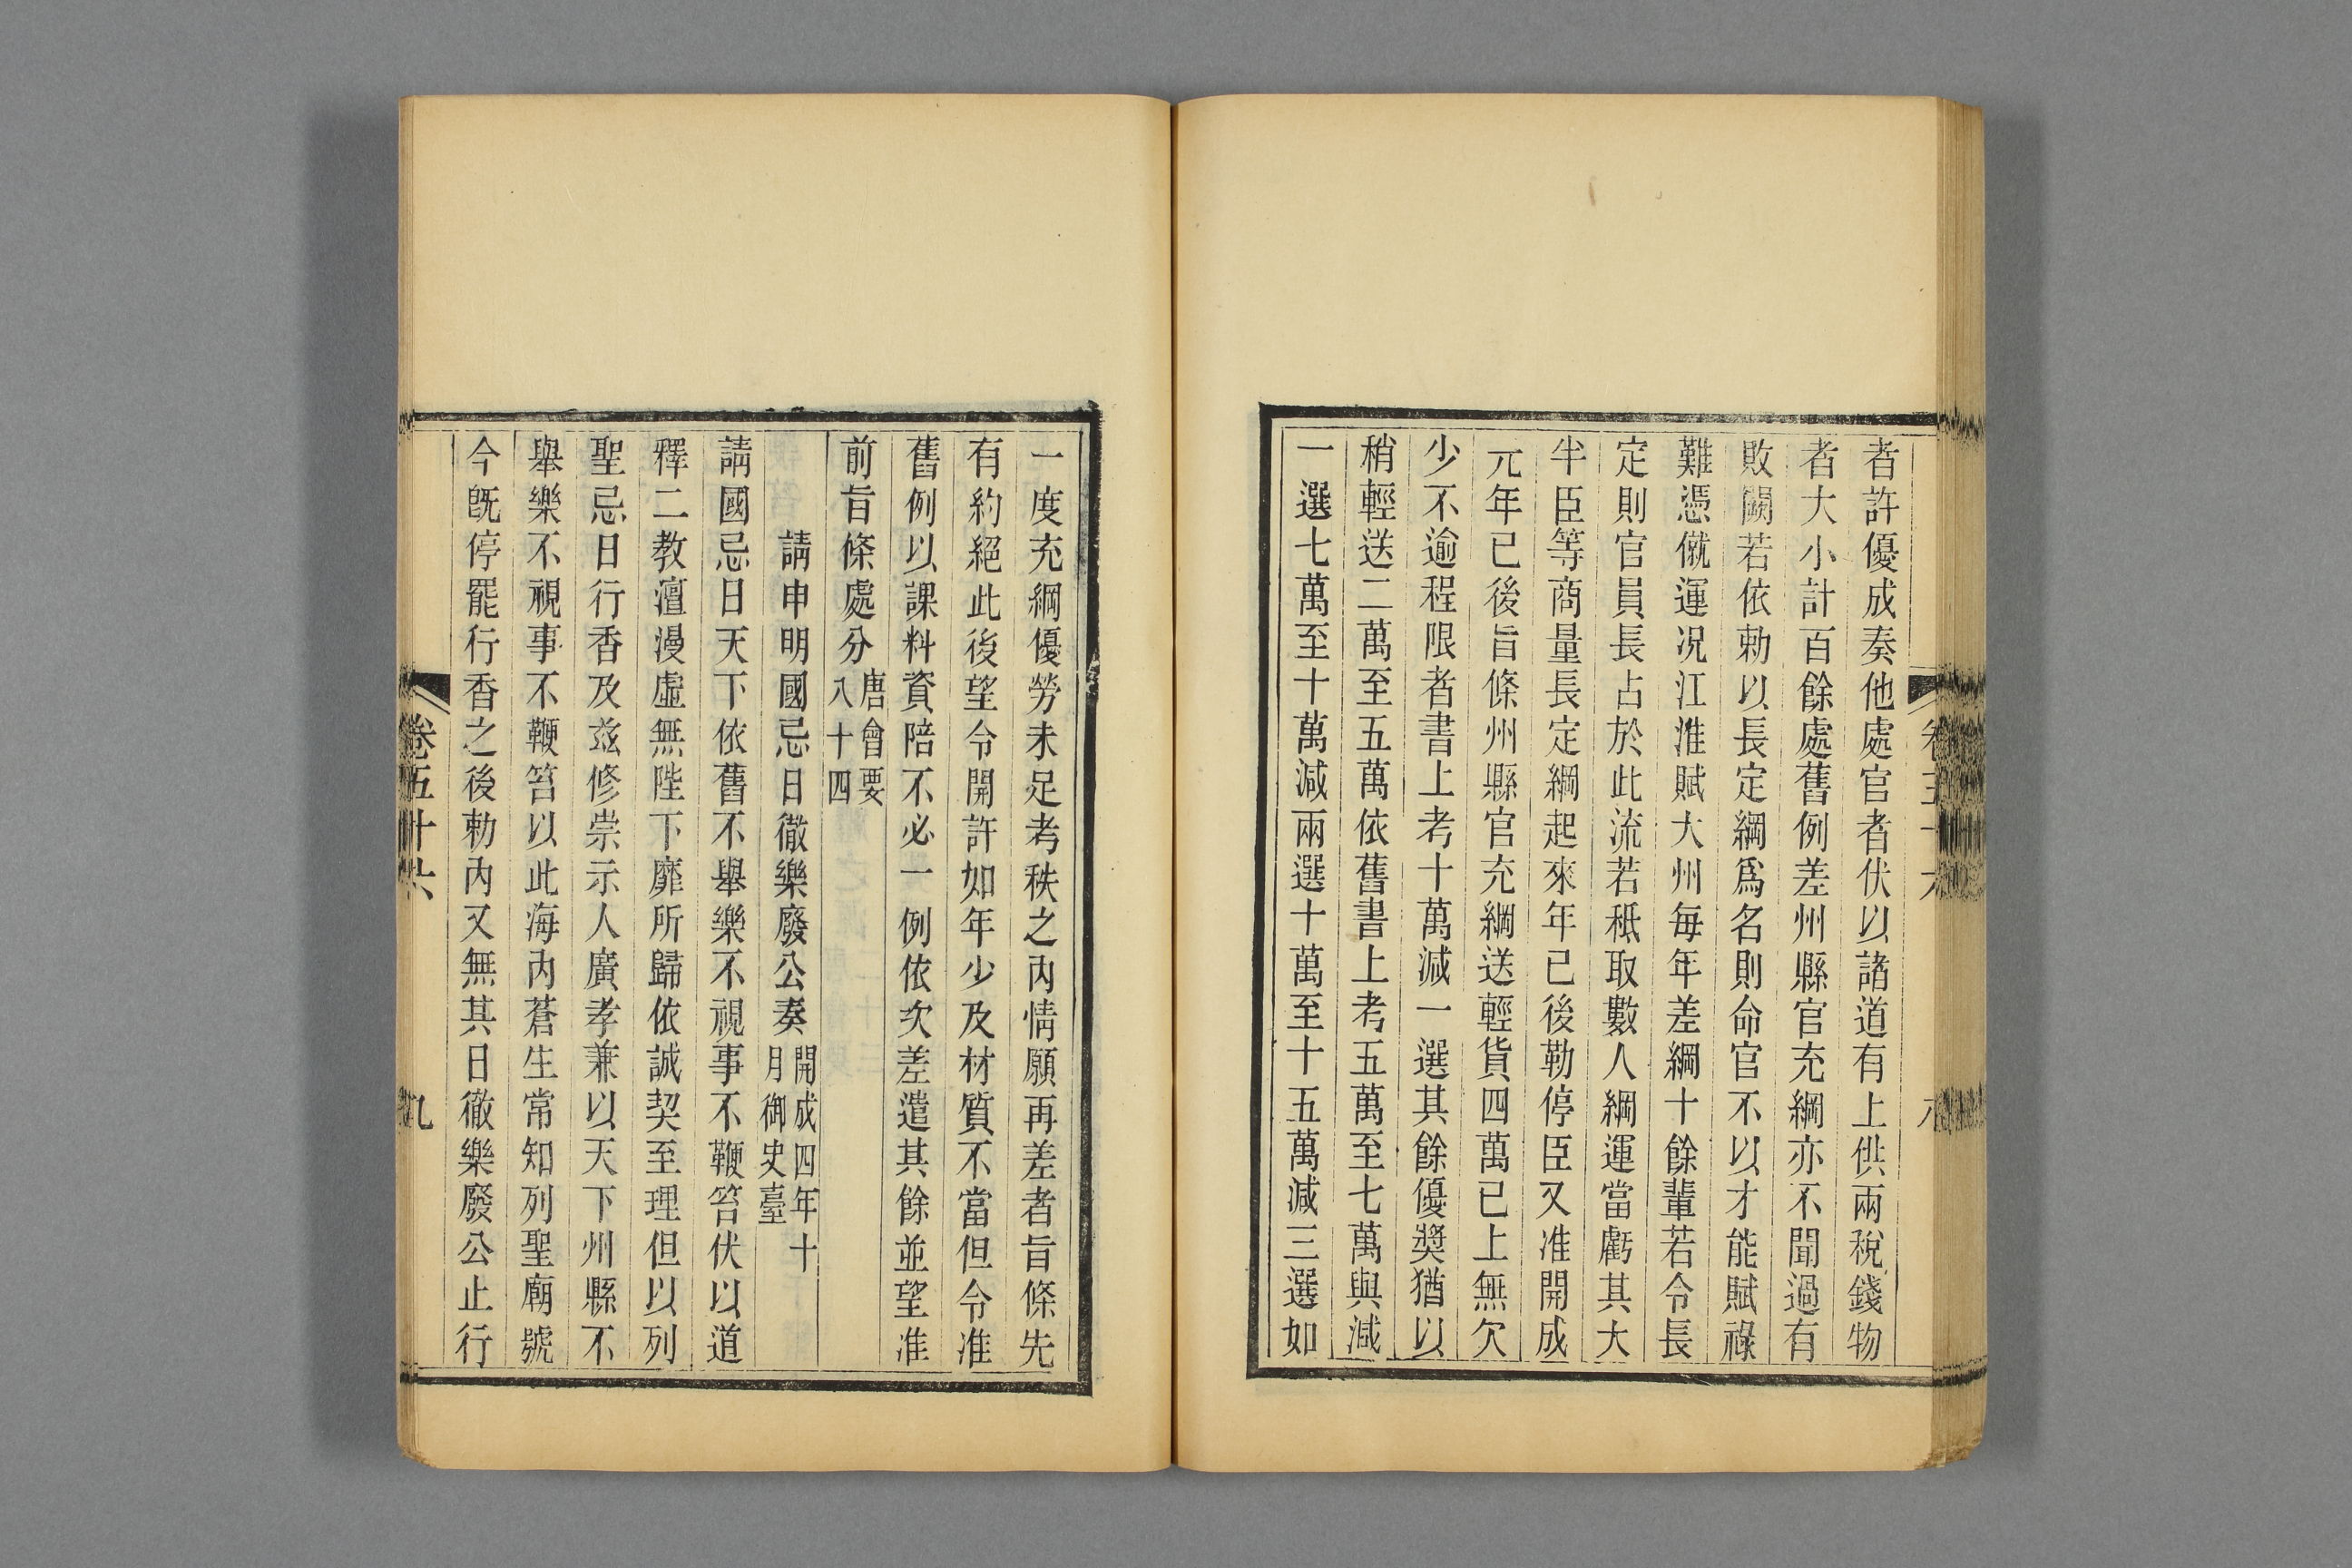 者許優成奏他處官者伏以諸道有上供兩稅錢物
者大小計百餘處舊例差州縣官充綱亦不聞過有
敗闕若依勅以長定綱爲名則命官不以才能賦祿
難憑僦運况江淮賦大州每年差綱十餘輩若令長
定則官員長占於此流若秪取數人綱運當虧其大
半臣等商量長定綱起來年已後勒停臣又准開成
元年已後旨條州縣官充綱送輕貨四萬已上無欠
少不逾程限者書上考十萬減一選其餘優奬猶以
稍輕送二萬至五萬依舊書上考五萬至七萬與減
一選七萬至十萬減兩選十萬至十五萬減三選如
一度充綱優勞未足考秩之內情願再差者旨條先
有約絕此後望令開許如年少及材質不當但令准
舊例以課料資陪不必一例依次差遣其餘並望准
前旨條處分唐會要八十四
請申明國忌日徹樂廢公奏開成四年十月御史臺
請國忌日天下依舊不舉樂不視事不鞭笞伏以道
釋二教澶漫虛無陛下靡所歸依誠契至理但以列
聖忌日行香及玆修崇示人廣孝兼以天下州縣不
舉樂不視事不鞭笞以此海內蒼生常知列聖廟號
今既停罷行香之後勅內又無其日徹樂廢公止行
卷五十六
九